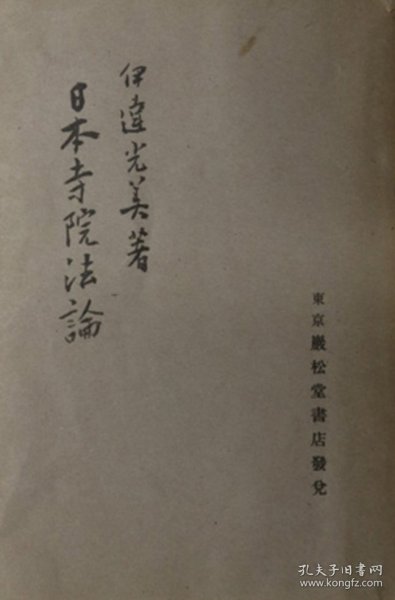 東京巖松堂書店發兌
伊達光美著
日本寺院法論
孔夫子旧书网
www.kongfz.com